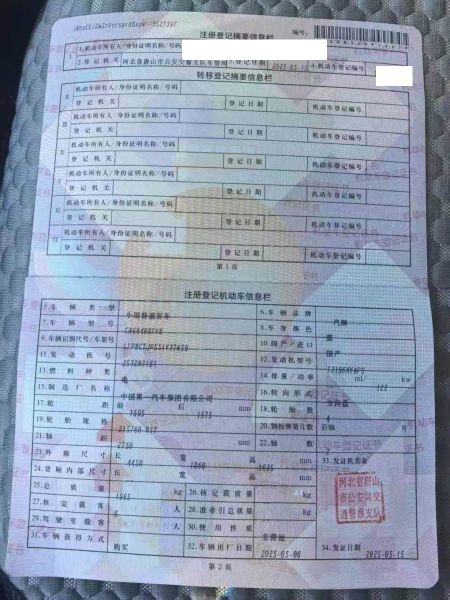 注册登记摘要信息栏
编号:
1.机动车所有人/身份证明名称/号码
2.登记机关 河北省唐山市公安交警支队车管所 3.登记日期 2025-05-15 4.机动车登记编号
转移登记摘要信息栏
机动车所有人/身份证明名称/号码
登记机关 登记日期 机动车登记编号
机动车所有人/身份证明名称/号码
登记机关 登记日期 机动车登记编号
机动车所有人/身份证明名称/号码
登记机关 登记日期 机动车登记编号
机动车所有人/身份证明名称/号码
登记机关 登记日期 机动车登记编号
机动车所有人/身份证明名称/号码
登记机关 登记日期 机动车登记编号
第1页
注册登记机动车信息栏
5.车辆类型 小型普通客车 6.车辆品牌 汽牌
7.车辆型号 8.车身颜色
9.车辆识别代号/车架号 10.国产/进口 国产
11.发动机号 12.发动机型号
13.燃料种类 电 14.排量/功率 ml/ kw
15.制造厂名称 中国第一汽车集团有限公司 16.转向形式 方向盘
17.轮距 前 1595 后 1575 mm 18.轮胎数 4
19.轮胎规格 215/60 R17 20.钢板弹簧片数 后轴
21.轴距 2750 mm 22.轴数 2
23.外廓尺寸 长 4450 宽 1860 高 1635 mm 33.发证机关章
24.货厢内部尺寸 长 宽 高 mm
25.总质量 1965 kg 26.核定载质量 kg
27.核定载客 5 人 28.准牵引总质量 kg
29.驾驶室载客 人 30.使用性质 非营运
31.车辆获得方式 购买 32.车辆出厂日期 2025-05-06 34.发证日期 2025-05-15
河北省唐山
市公安局交
通警察支队
第2页